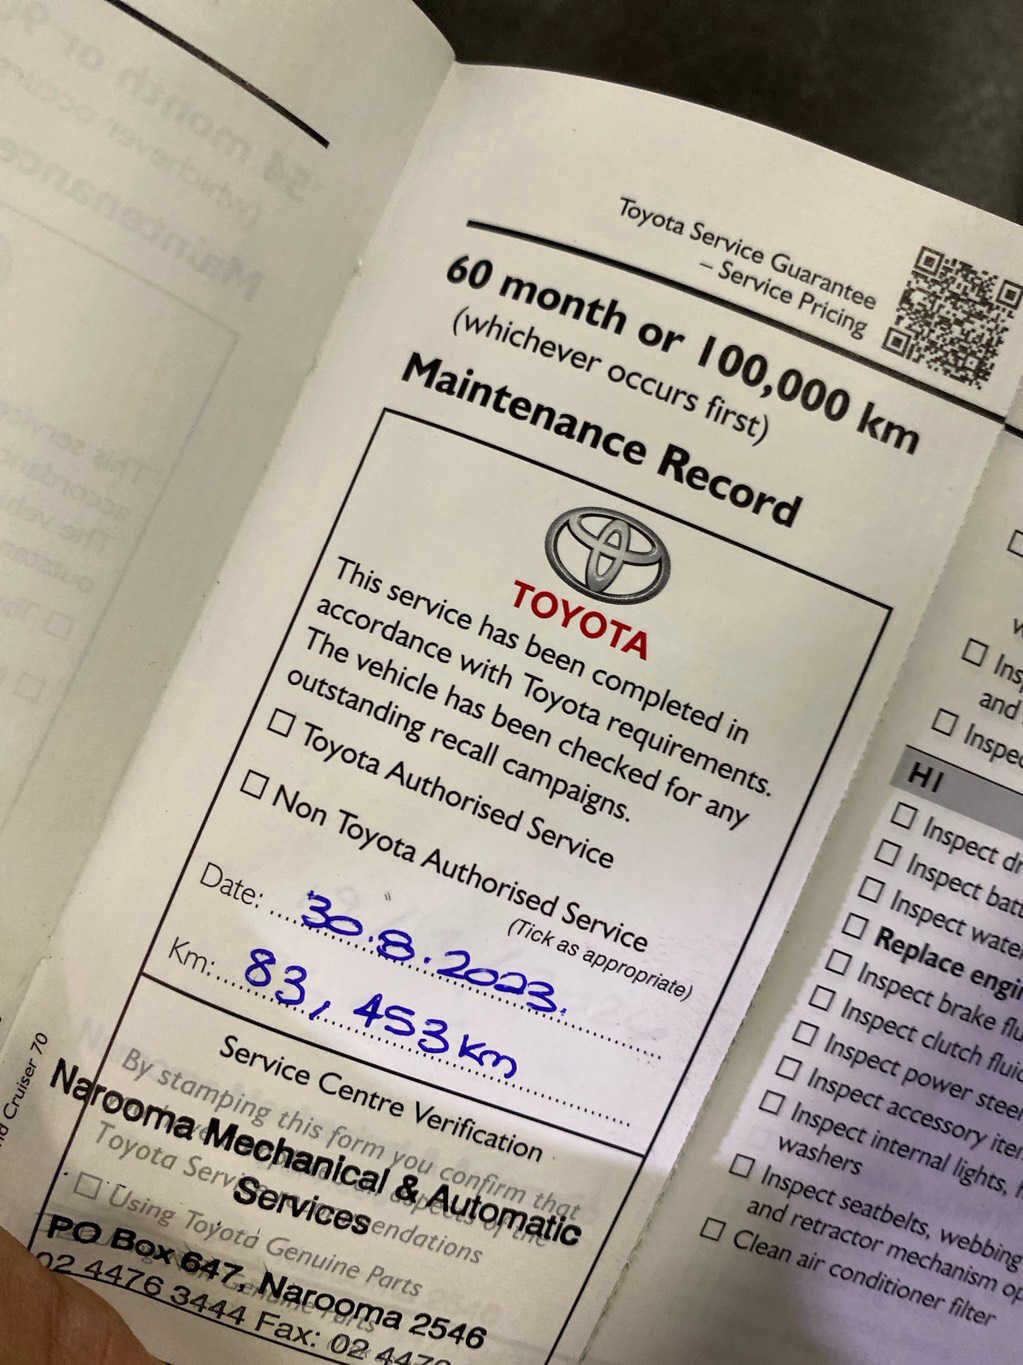 Toyota Service Guarantee
– Service Pricing
60 month or 100,000 km
(whichever occurs first)
Maintenance Record
TOYOTA
This service has been completed in
accordance with Toyota requirements.
The vehicle has been checked for any
outstanding recall campaigns.
☐ Toyota Authorised Service
☐ Non Toyota Authorised Service
(Tick as appropriate)
Date: 30.8.2023.
Km: 83,453km
Service Centre Verification
By stamping this form you confirm that
Toyota
☐ Using Toyota Genuine Parts
Narooma Mechanical & Automatic
Services
PO Box 647, Narooma 2546
02 4476 3444 Fax: 02
Cruiser 70
and
HI
☐ Inspect
☐ Inspect
☐ Inspect
☐ Replace
☐ Inspect brake
☐ Inspect clutch
☐ Inspect power
☐ Inspect accessory
☐ Inspect internal lights,
washers
☐ Inspect seatbelts, webbing
and retractor mechanism
☐ Clean air conditioner filter